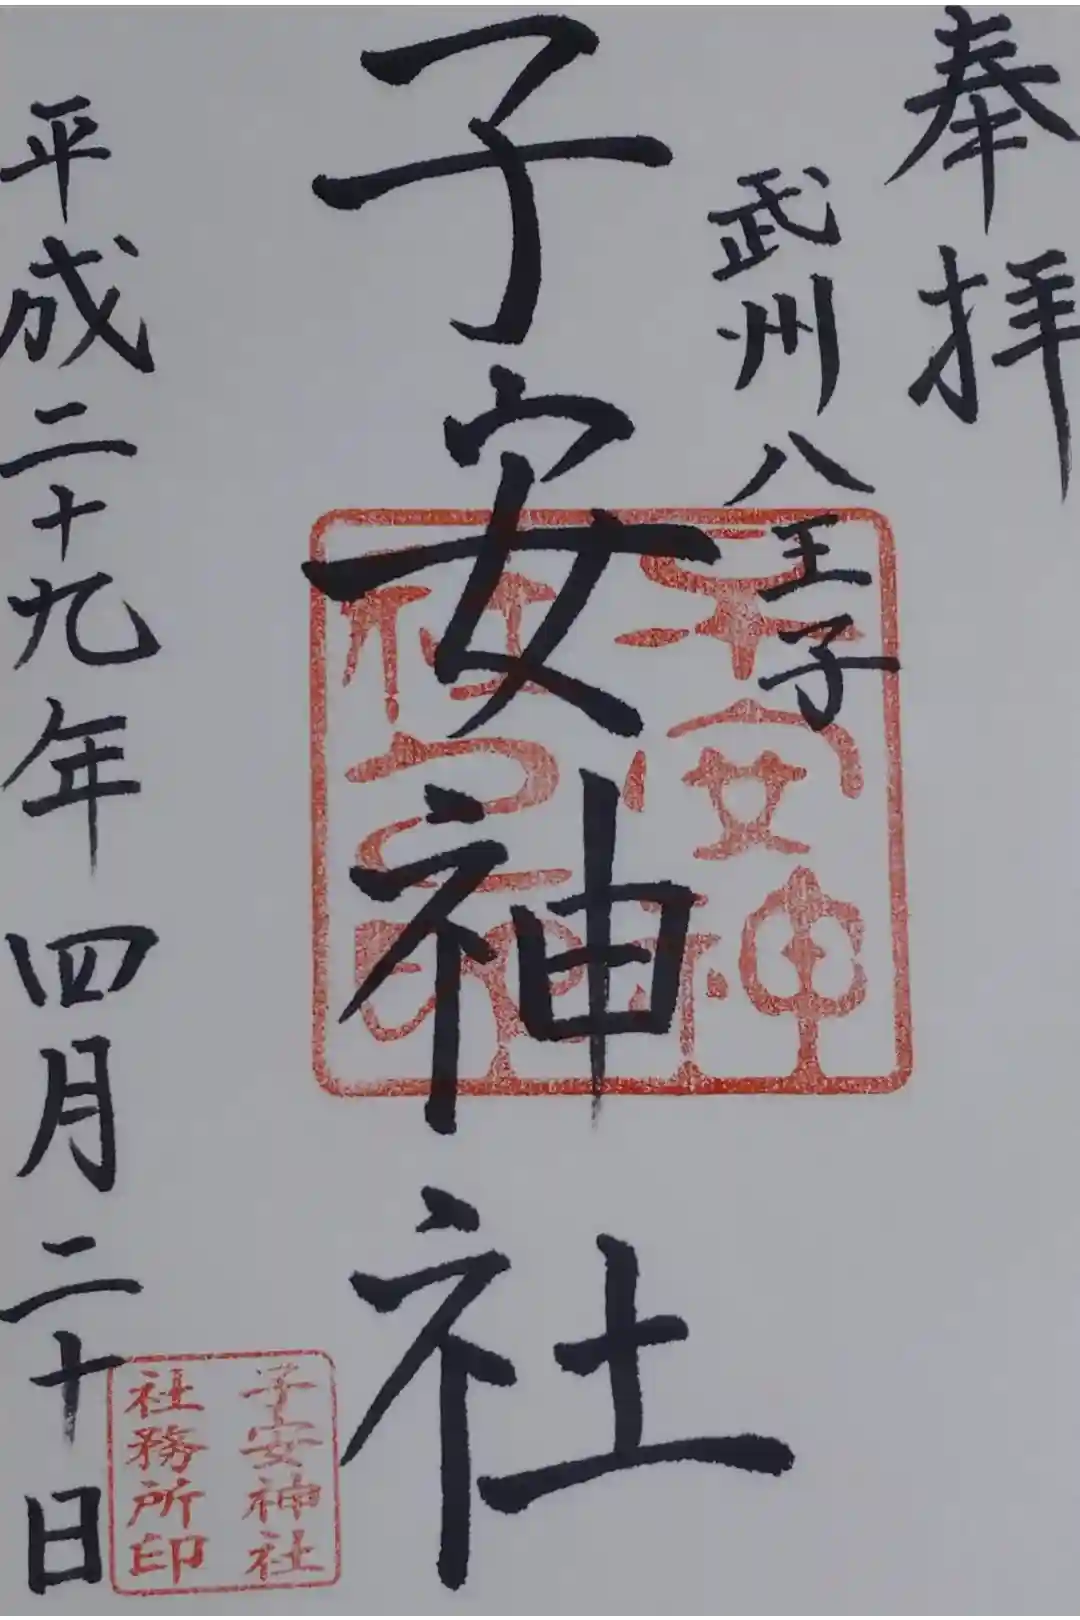 奉拝
武州八王子
子安神社
子安神社之印
平成二十九年 四月二十日
子安神社
社務所印